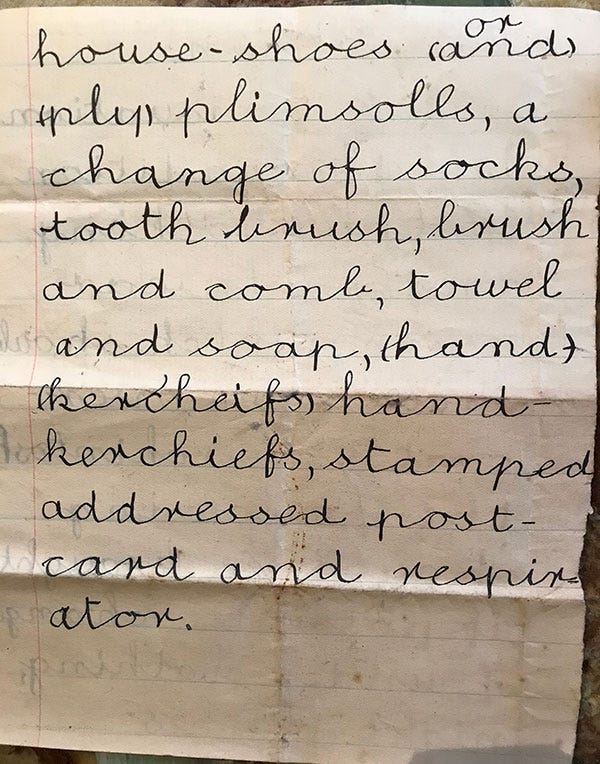 or
house-shoes (and)
(ply) plimsolls, a
change of socks,
tooth brush, brush
and comb, towel
and soap, (hand)
(kercheifs) hand-
kerchiefs, stamped
addressed post-
card and respir-
ator.